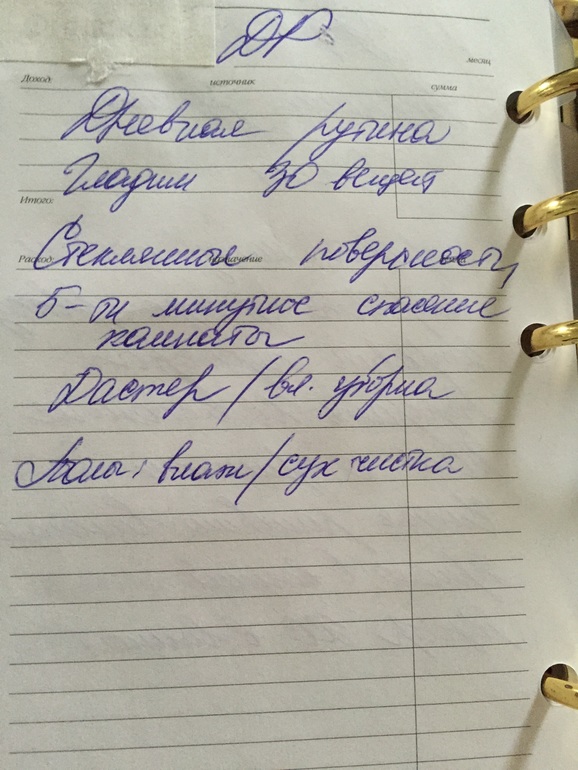 ДР
месяц
Доход: источник сумма
Дневная рутина
Гладим 30 вещей
Итого:
Стеклянные поверхности,
Расход: назначение
5-ти минутное спасение
комнаты
Дастер / вл. уборка
Полы: влаж/сух чистка